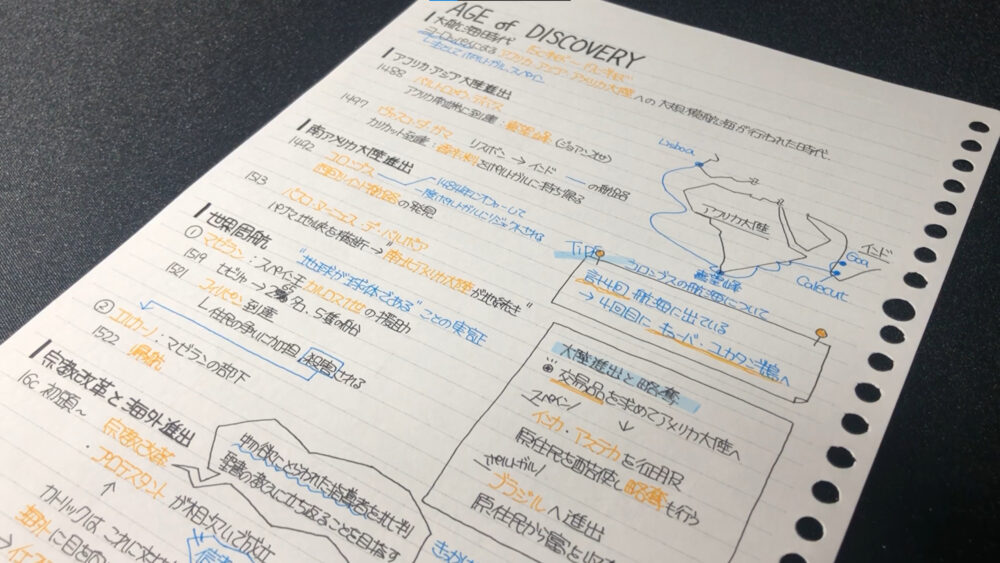 AGE of DISCOVERY
大航海時代 15c末ば〜17c末ば
ヨーロッパによる アフリカ・アジア・アメリカ大陸 への大規模航海が行われた時代.
主としてポルトガル、スペイン
アフリカ・アジア大陸進出
1488 バルトロメウ・ディアス
アフリカ南端に到達：喜望峰 (ジョアン2世)
1497 ヴァスコ・ダ・ガマ リスボン→インド の航路
カリカット到達：香辛料をポルトガルに持ち帰る
南アメリカ大陸進出
1492 コロンブス
西回りインド航路の発見
1513 バスコ・ヌーニェス・デ・バルボア
パナマ地峡を横断→"南北アメリカ大陸が地続き"
世界周航 "地球が球体である"ことの実証
① マゼラン：スペイン王 カルロス1世の援助
1519 セビリャ→ 名・5隻の船
1521 フィリピン到達
住民の争いに加担 殺害される
② エルカーノ：マゼランの部下
1522 帰航
宗教改革と海外進出
16c 初頭〜
宗教改革
：プロテスタント が相次いで成立
カトリックは これに対
海外に目を
物欲にとらわれた指導者を批判
聖書の教えに立ち返ることを目指す
Lisboa
アフリカ大陸
インド
Goa
Calecut
喜望峰
Tips
コロンブスの航海について
計4回 航海に出ている
→ 4回目に キューバ・ユカタン半島へ
大陸進出と略奪
◉ 交易品を求めてアメリカ大陸へ
スペイン ↓
インカ・アステカを征服
原住民を酷使し略奪も行う
ポルトガル
ブラジルへ進出
原住民から富を